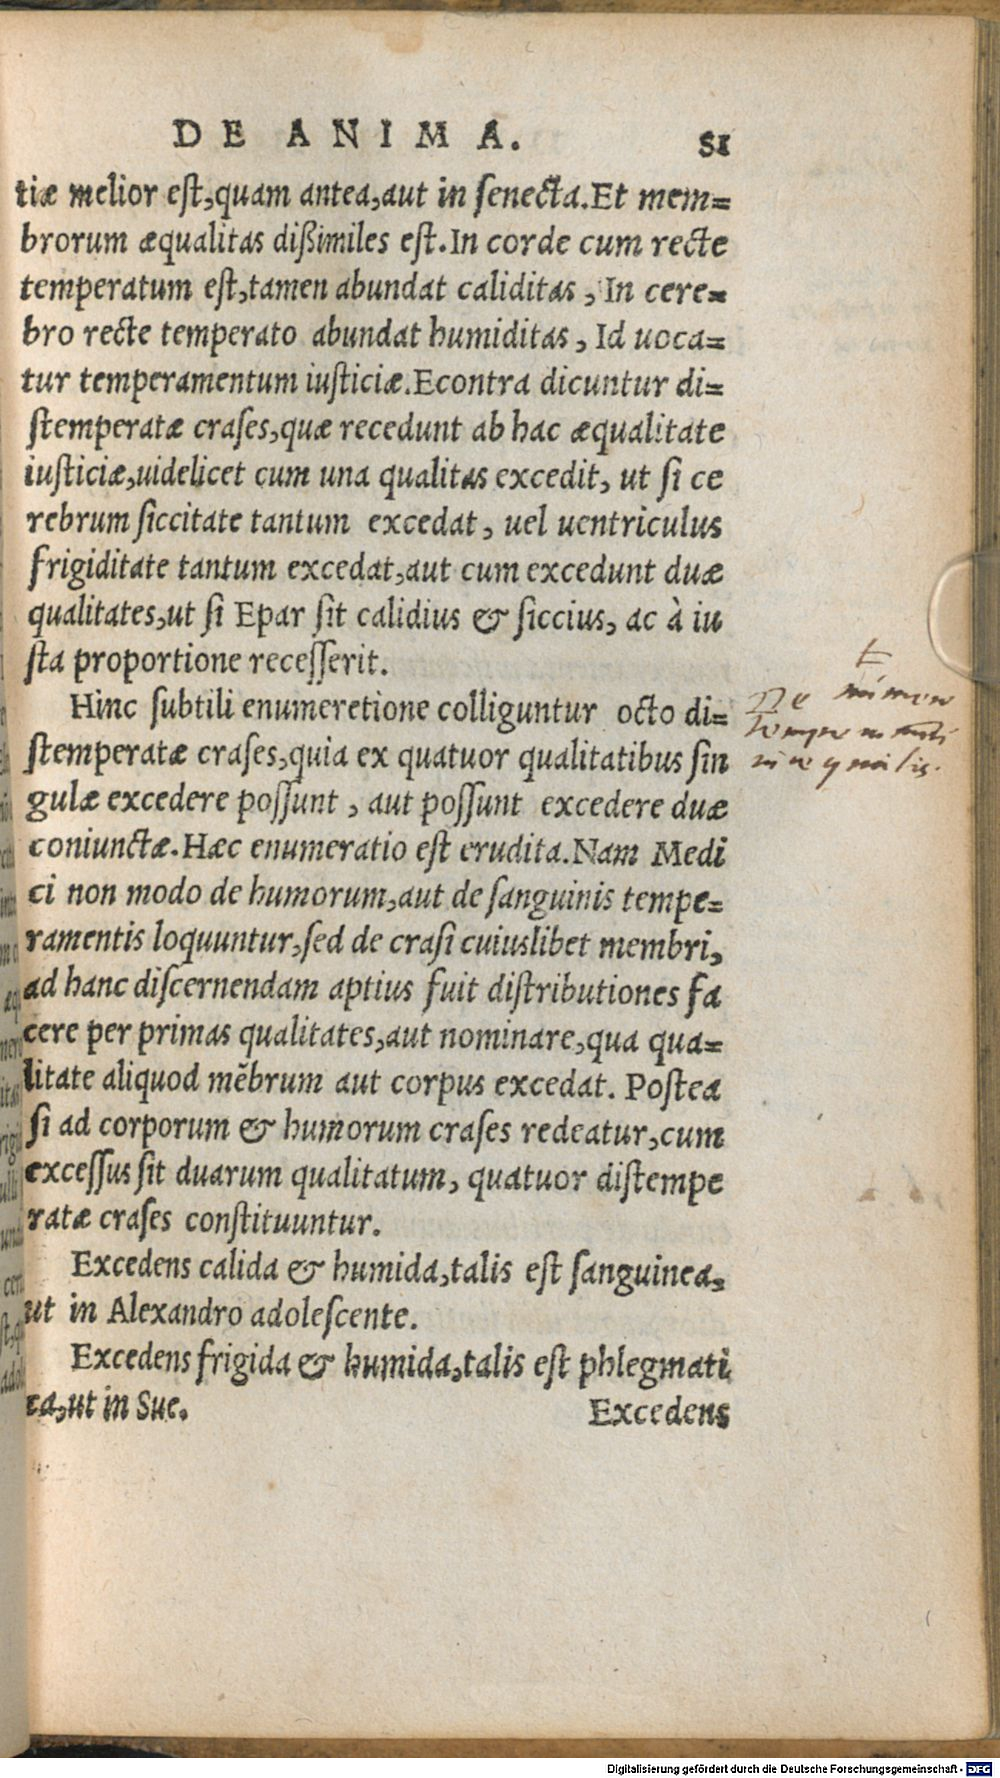 DE ANIMA. 81
tiæ melior est,quam antea,aut in senecta.Et mem=
brorum æqualitas dißimiles est.In corde cum recte
temperatum est,tamen abundat caliditas , In cere=
bro recte temperato abundat humiditas , Id uoca=
tur temperamentum iusticiæ.Econtra dicuntur di=
stemperatæ crases,quæ recedunt ab hac æqualitate
iusticiæ,uidelicet cum una qualitas excedit, ut si ce
rebrum siccitate tantum excedat, uel uentriculus
frigiditate tantum excedat,aut cum excedunt duæ
qualitates,ut si Epar sit calidius & siccius, ac à iu
sta proportione recesserit.
Hinc subtili enumeretione colliguntur octo di=
stemperatæ crases,quia ex quatuor qualitatibus sin
gulæ excedere possunt , aut possunt excedere duæ
coniunctæ.Hæc enumeratio est erudita.Nam Medi
ci non modo de humorum,aut de sanguinis tempe=
ramentis loquuntur,sed de crasi cuiuslibet membri,
ad hanc discernendam aptius fuit distributiones fa
cere per primas qualitates,aut nominare,qua qua=
litate aliquod mẽbrum aut corpus excedat. Postea
si ad corporum & humorum crases redeatur,cum
excessus sit duarum qualitatum, quatuor distempe
ratæ crases constituuntur.
Excedens calida & humida,talis est sanguinea,
ut in Alexandro adolescente.
Excedens frigida & humida,talis est phlegmati
ca,ut in Sue.
Excedens
Digitalisierung gefördert durch die Deutsche Forschungsgemeinschaft - DFG